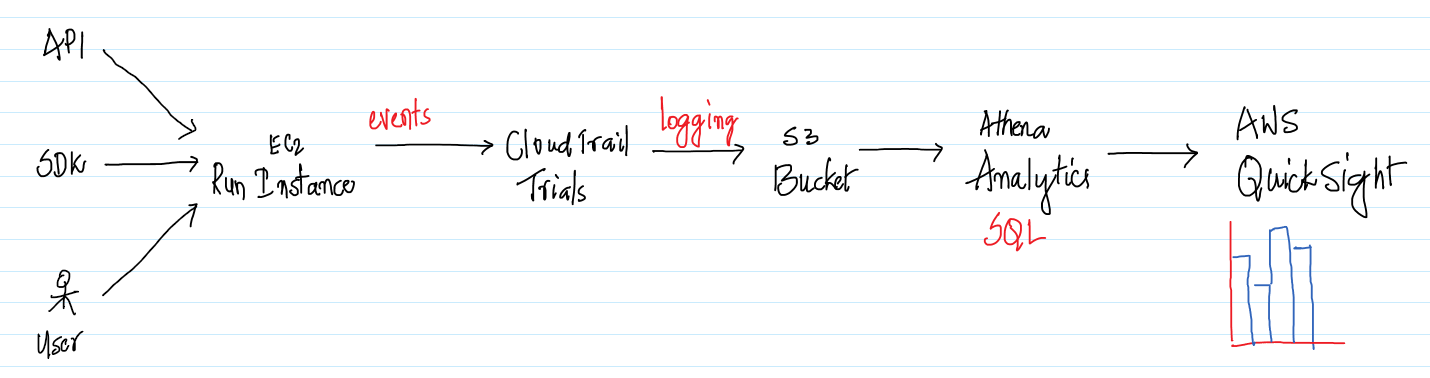 API
SDK
User
EC2
Run Instance
events
CloudTrail
Trials
logging
S3
Bucket
Athena
Analytics
SQL
AWS
QuickSight